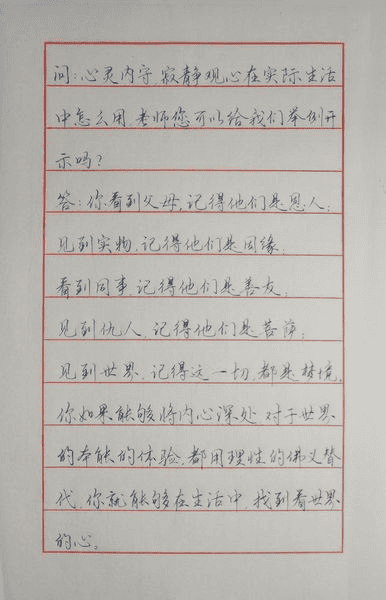 问:心灵内守,寂静观心在实际生活
中怎么用,老师您可以给我们举例开
示吗?
答:你看到父母,记得他们是恩人;
见到实物,记得他们是因缘;
看到同事,记得他们是善友;
见到仇人,记得他们是菩萨;
见到世界,记得这一切,都是梦境。
你如果能够将内心深处,对于世界
的本能的体验,都用理性的佛义替
代,你就能够在生活中,找到看世界
的心。